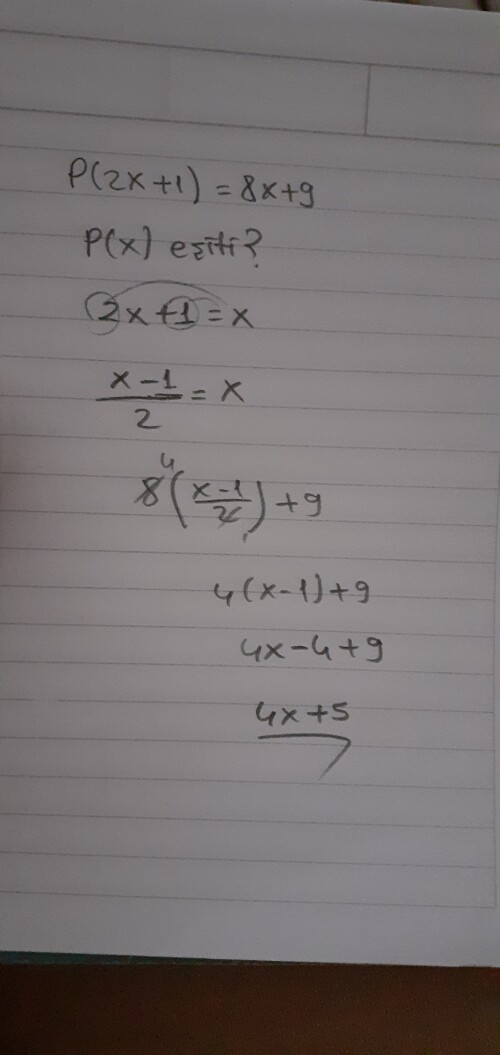 P(2x+1) = 8x+9
P(x) eşiti?
2x+1=x
x-1/2 = x
4
8(x-1/2)+9
4(x-1)+9
4x-4+9
4x+5